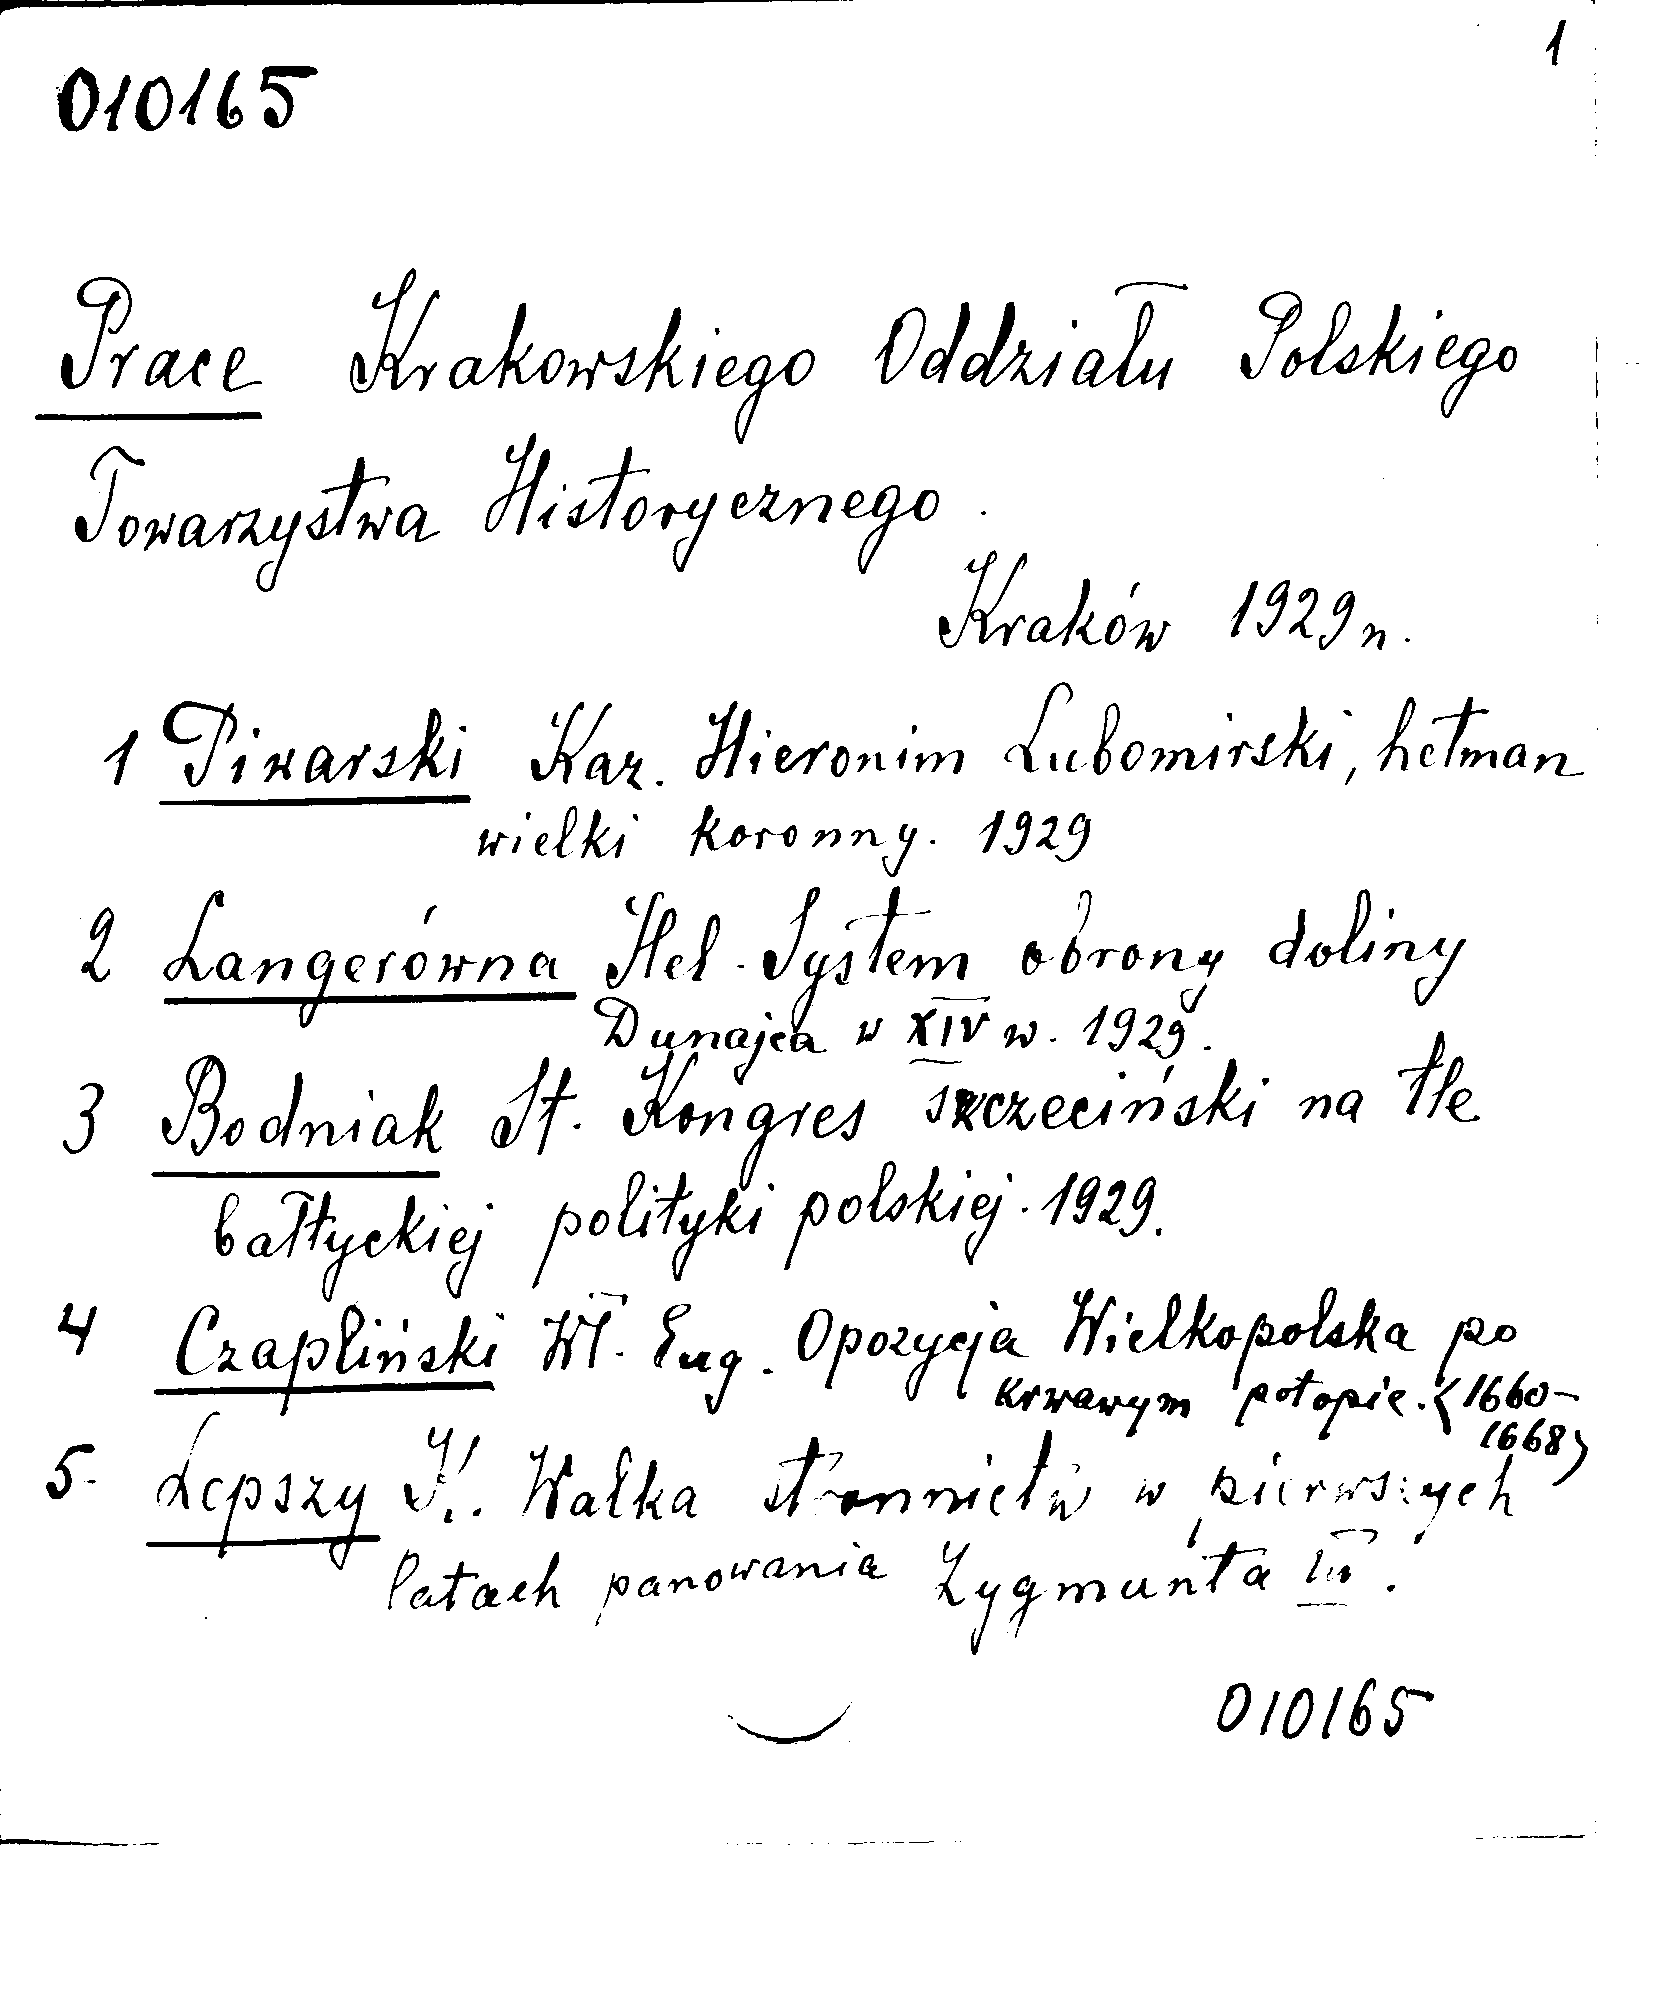 1
010165
Prace Krakowskiego Oddziału Polskiego
Towarzystwa Historycznego.
Kraków 1929 r.
1 Piwarski Kaz. Hieronim Lubomirski, hetman
wielki koronny. 1929
2 Langerówna Hel. System obrony doliny
Dunajca w XIV w. 1929.
3 Bodniak St. Kongres szczeciński na tle
bałtyckiej polityki polskiej. 1929.
4 Czapliński Wł. Eug. Opozycja Wielkopolska po
krwawym potopie. (1660-
1668)
5. Lepszy K. Walka stronnictw w pierwszych
latach panowania Zygmunta III.
010165